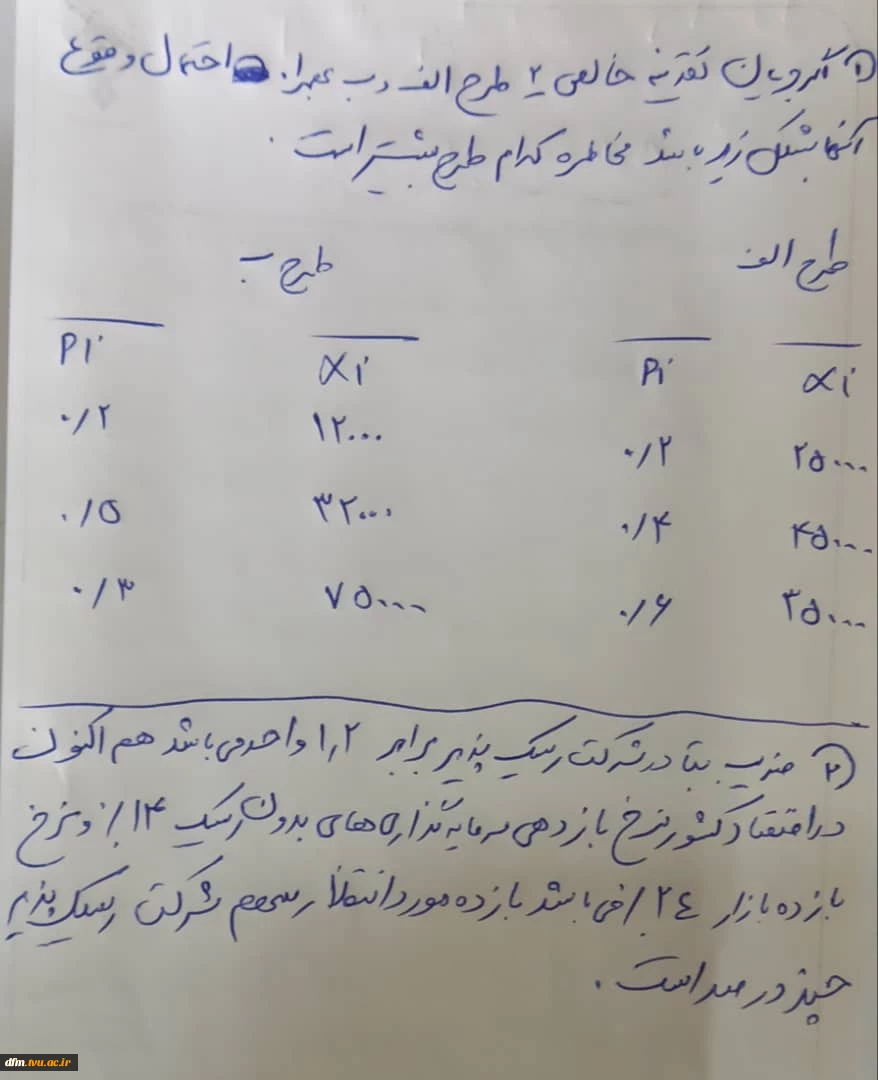 ① اگر جریان نقدینه خالص ۲ طرح الف و ب بهمراه احتمال وقوع
آنها بشکل زیر باشد مخاطره کدام طرح بیشتر است .
طرح الف    طرح ب
xi    Pi    xi    Pi
۲۵۰۰۰    ۰/۲    ۱۲۰۰۰    ۰/۲
۴۵۰۰۰    ۰/۴    ۳۲۰۰۰    ۰/۵
۳۵۰۰۰    ۰/۶    ۷۵۰۰۰    ۰/۳
② ضریب بتا در شرکت ریسک پذیر برابر ۱,۲ واحد می باشد هم اکنون
در اقتصاد کشور نرخ بازدهی سرمایه گذاری های بدون ریسک ۱۴٪ و نرخ
بازده بازار ۲٤٪ می باشد بازده مورد انتظار سهم شرکت ریسک پذیر
چند درصد است .
dfm.tvu.ac.ir